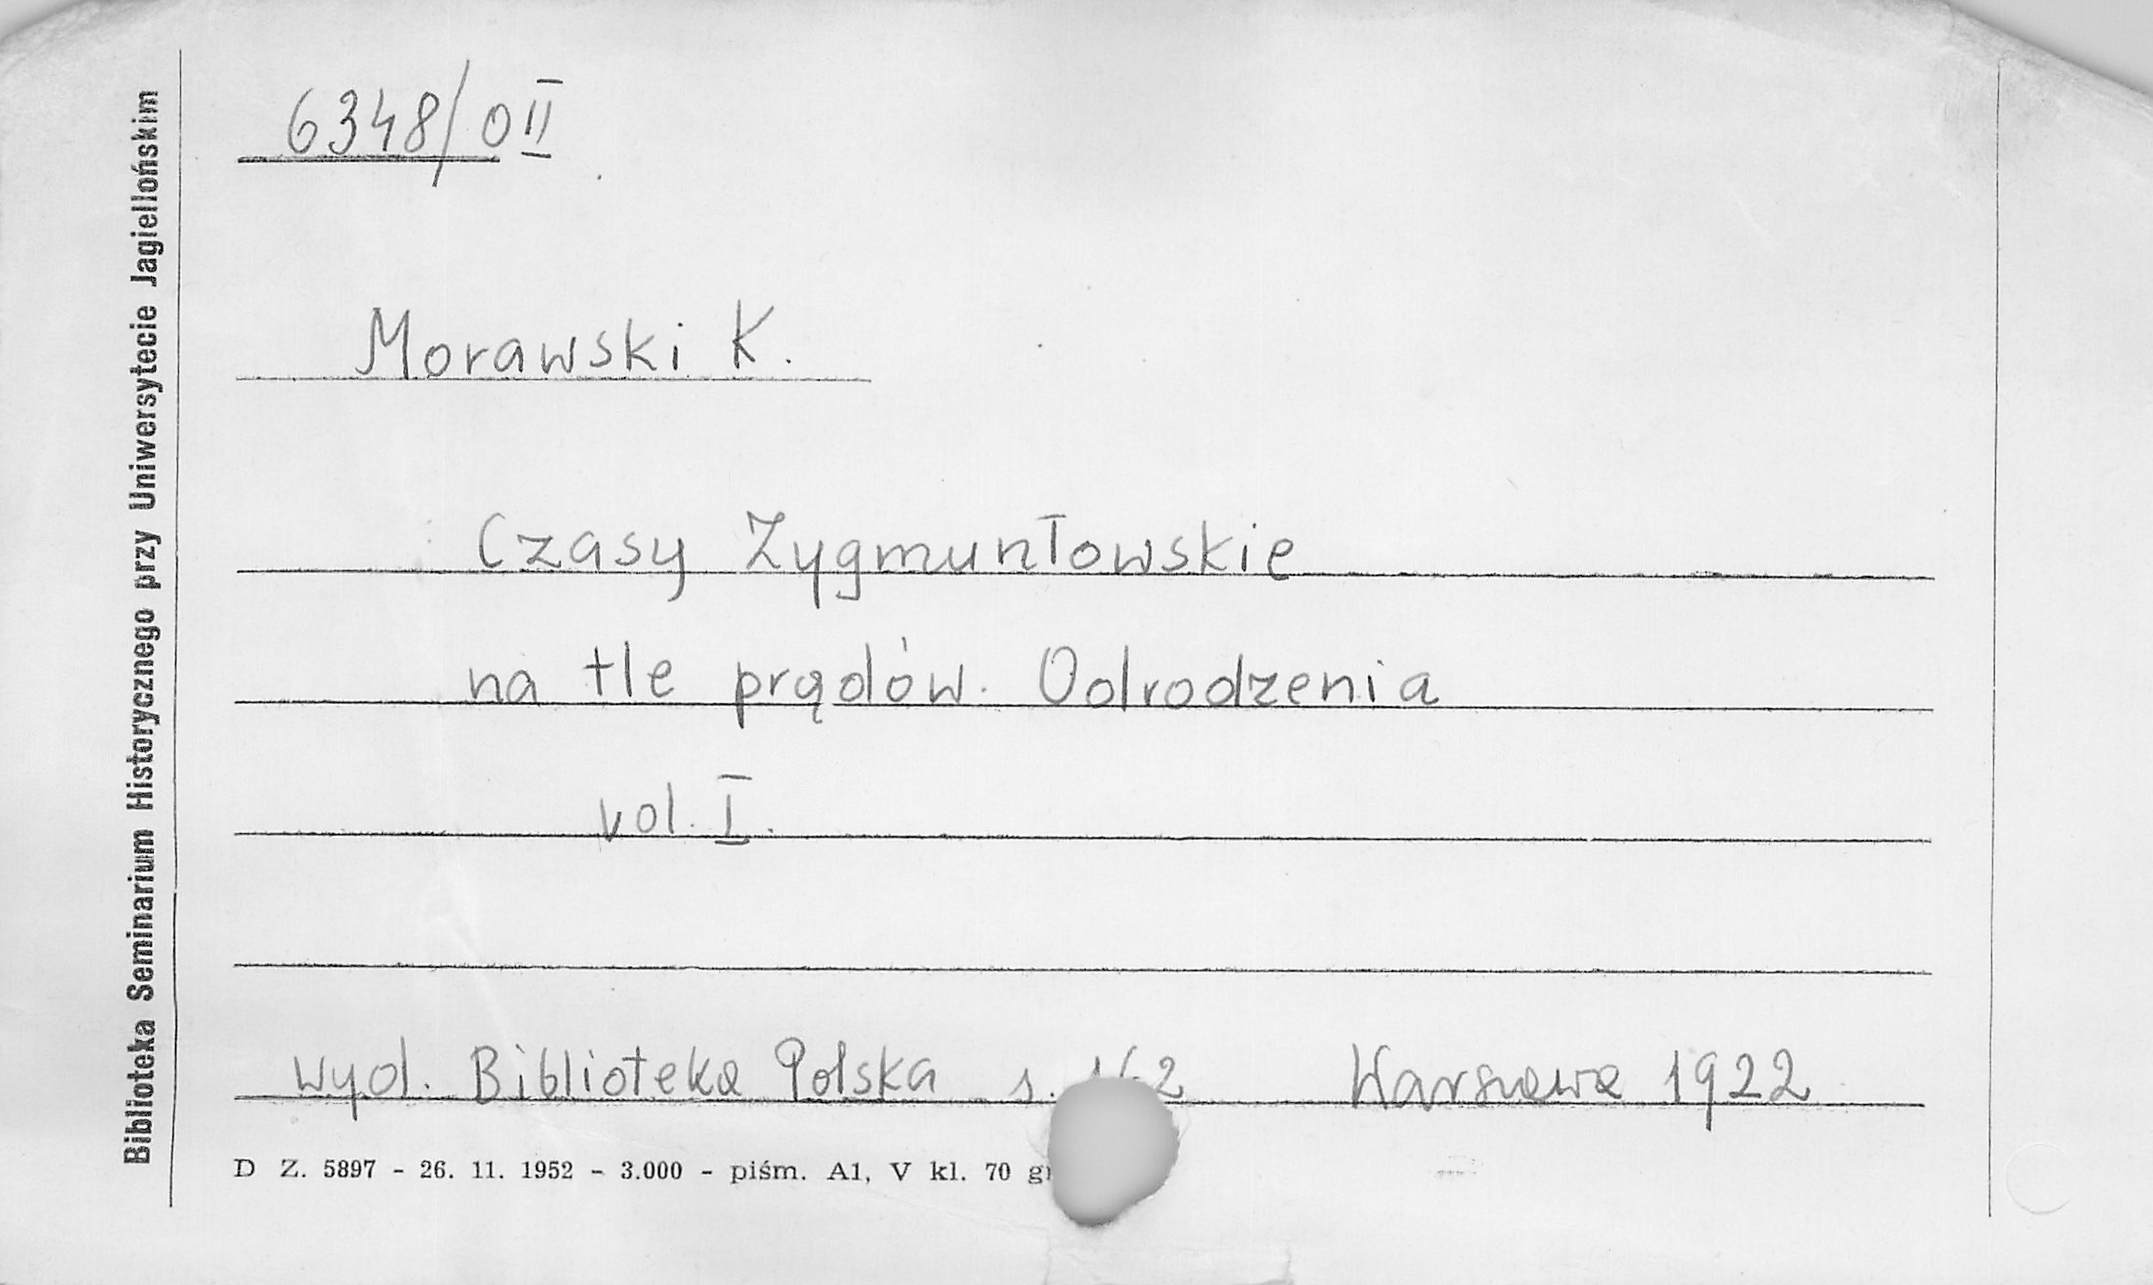 6348/0 II
Morawski K.
Czasy Zygmuntowskie
na tle prądów Odrodzenia
vol. I.
wyd. Biblioteka Polska s. Warszawa 1922
D Z. 5897 - 26. 11. 1952 - 3.000 - piśm. A1, V kl. 70
Biblioteka Seminarium Historycznego przy Uniwersytecie Jagiellońskim